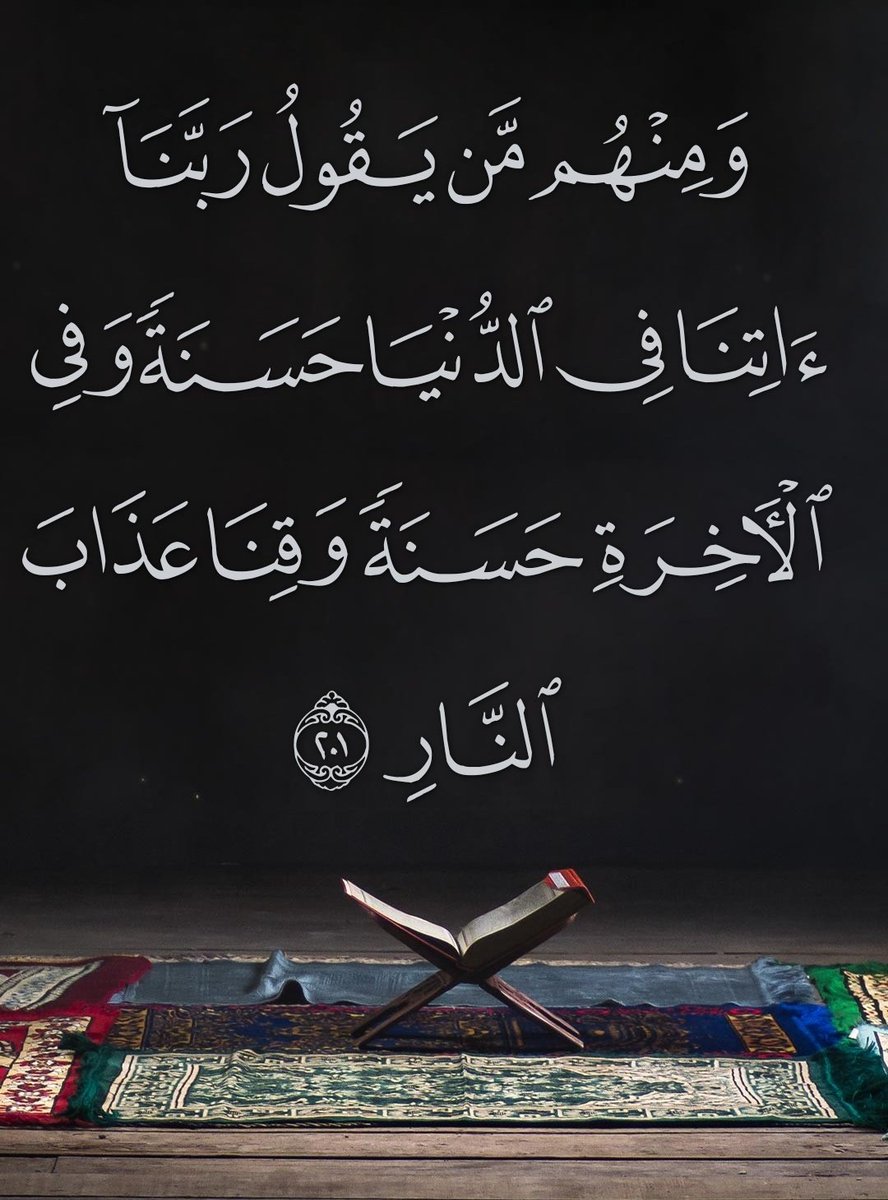 وَمِنْهُم مَّن يَقُولُ رَبَّنَآ
ءَاتِنَا فِى ٱلدُّنْيَا حَسَنَةً وَفِى
ٱلْأَخِرَةِ حَسَنَةً وَقِنَا عَذَابَ
ٱلنَّارِ ٢٠١